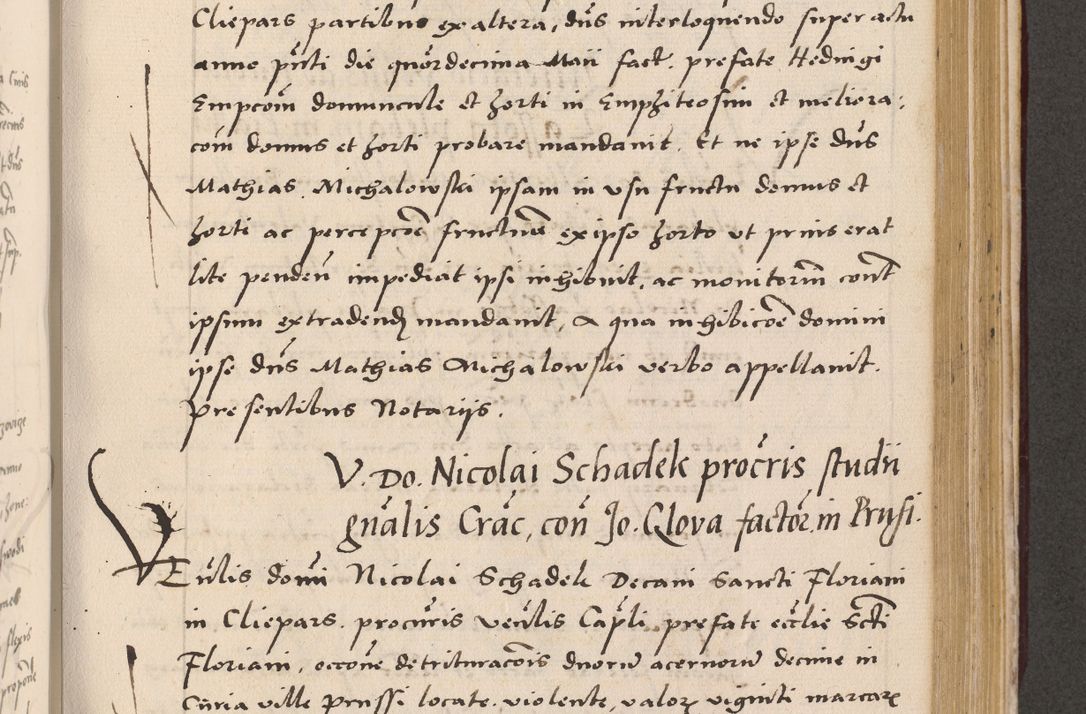 Cliepars partibus ex altera, dn̄s interloquendo super actu
anno pn̄ti die quōrdecima Maii fact. prefate Hedvigi
Empcōm domuncule et horti in Emphiteosim et meliora:
cōm domus et horti probare mandavit. Et ne ipse dn̄s
Mathias Michalowski ipsam in usu fructu domus et
horti ac percepcōe fructuum ex ipso horto ut prius erat
lite penden̄ impediat ipsi inhibuit, ac monitorim̄ cont̄
ipsum extradend mandavit, A qua inhibicōe domini
ipse dn̄s Mathias Michalowski verbo appellavit.
presentibus Notariis.
V. Do. Nicolai Schadek procr̄is studii
gn̄alis Crac̄, con̄ Jo. Glova factōr. in Prusi.
Ven̄lis domi Nicolai Schadek Decani Sancti Floriani
in Cliepars. procūris ven̄lis Capl̄i prefate eccl̄ie Sct̄i
Floriani, occōne detrituracōis duorum acervorum decime in
Cūria ville Prussi locate. violente, valor viginti marcar